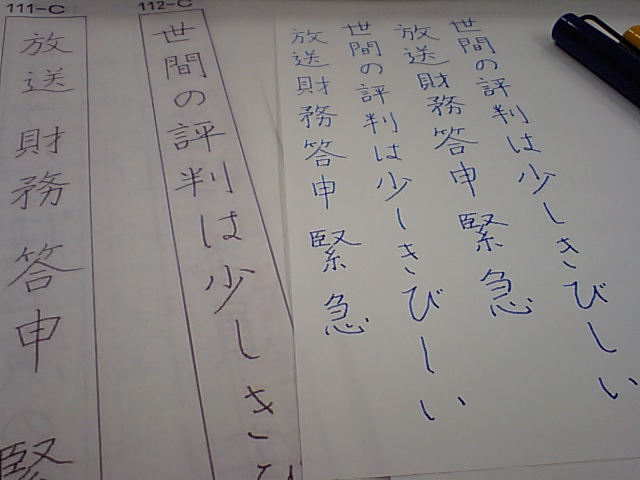 世間の評判は少しきびしい
放送財務答申緊急
世間の評判は少しきびしい
放送財務答申緊急
112-C
世間の評判は少しき
111-C
放送財務答申緊